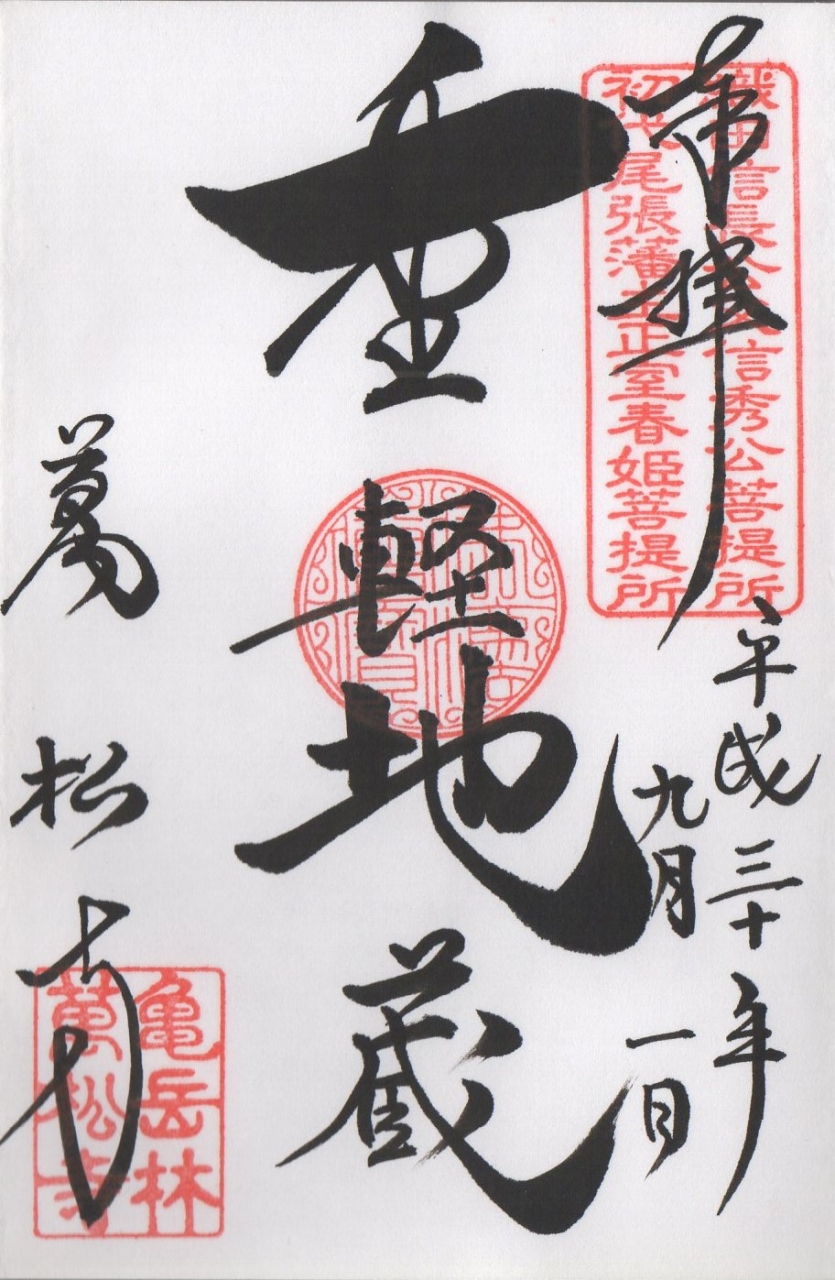 奉拝
織田信長公父信秀公菩提所
初代尾張藩主正室春姫菩提所
平成三十年
九月一日
重軽地蔵
萬松寺
亀岳林
萬松寺